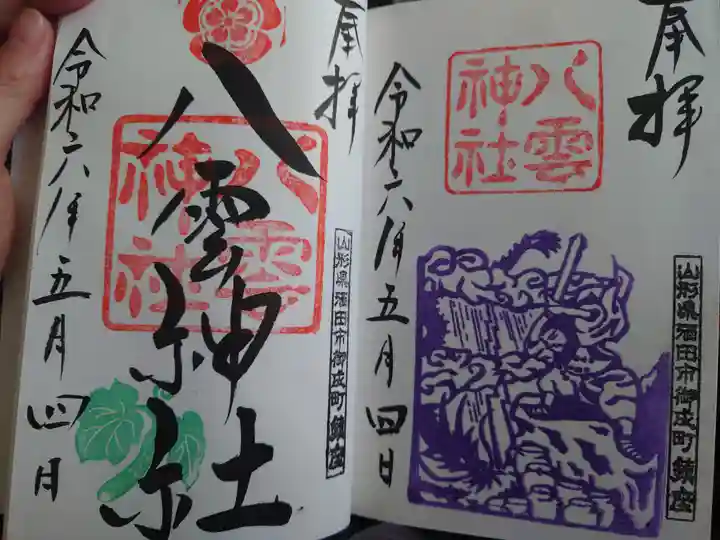 奉拝
八雲神社
八雲
神社
山形県酒田市御成町鎮座
令和六年五月四日
奉拝
八雲
神社
山形県酒田市御成町鎮座
令和六年五月四日